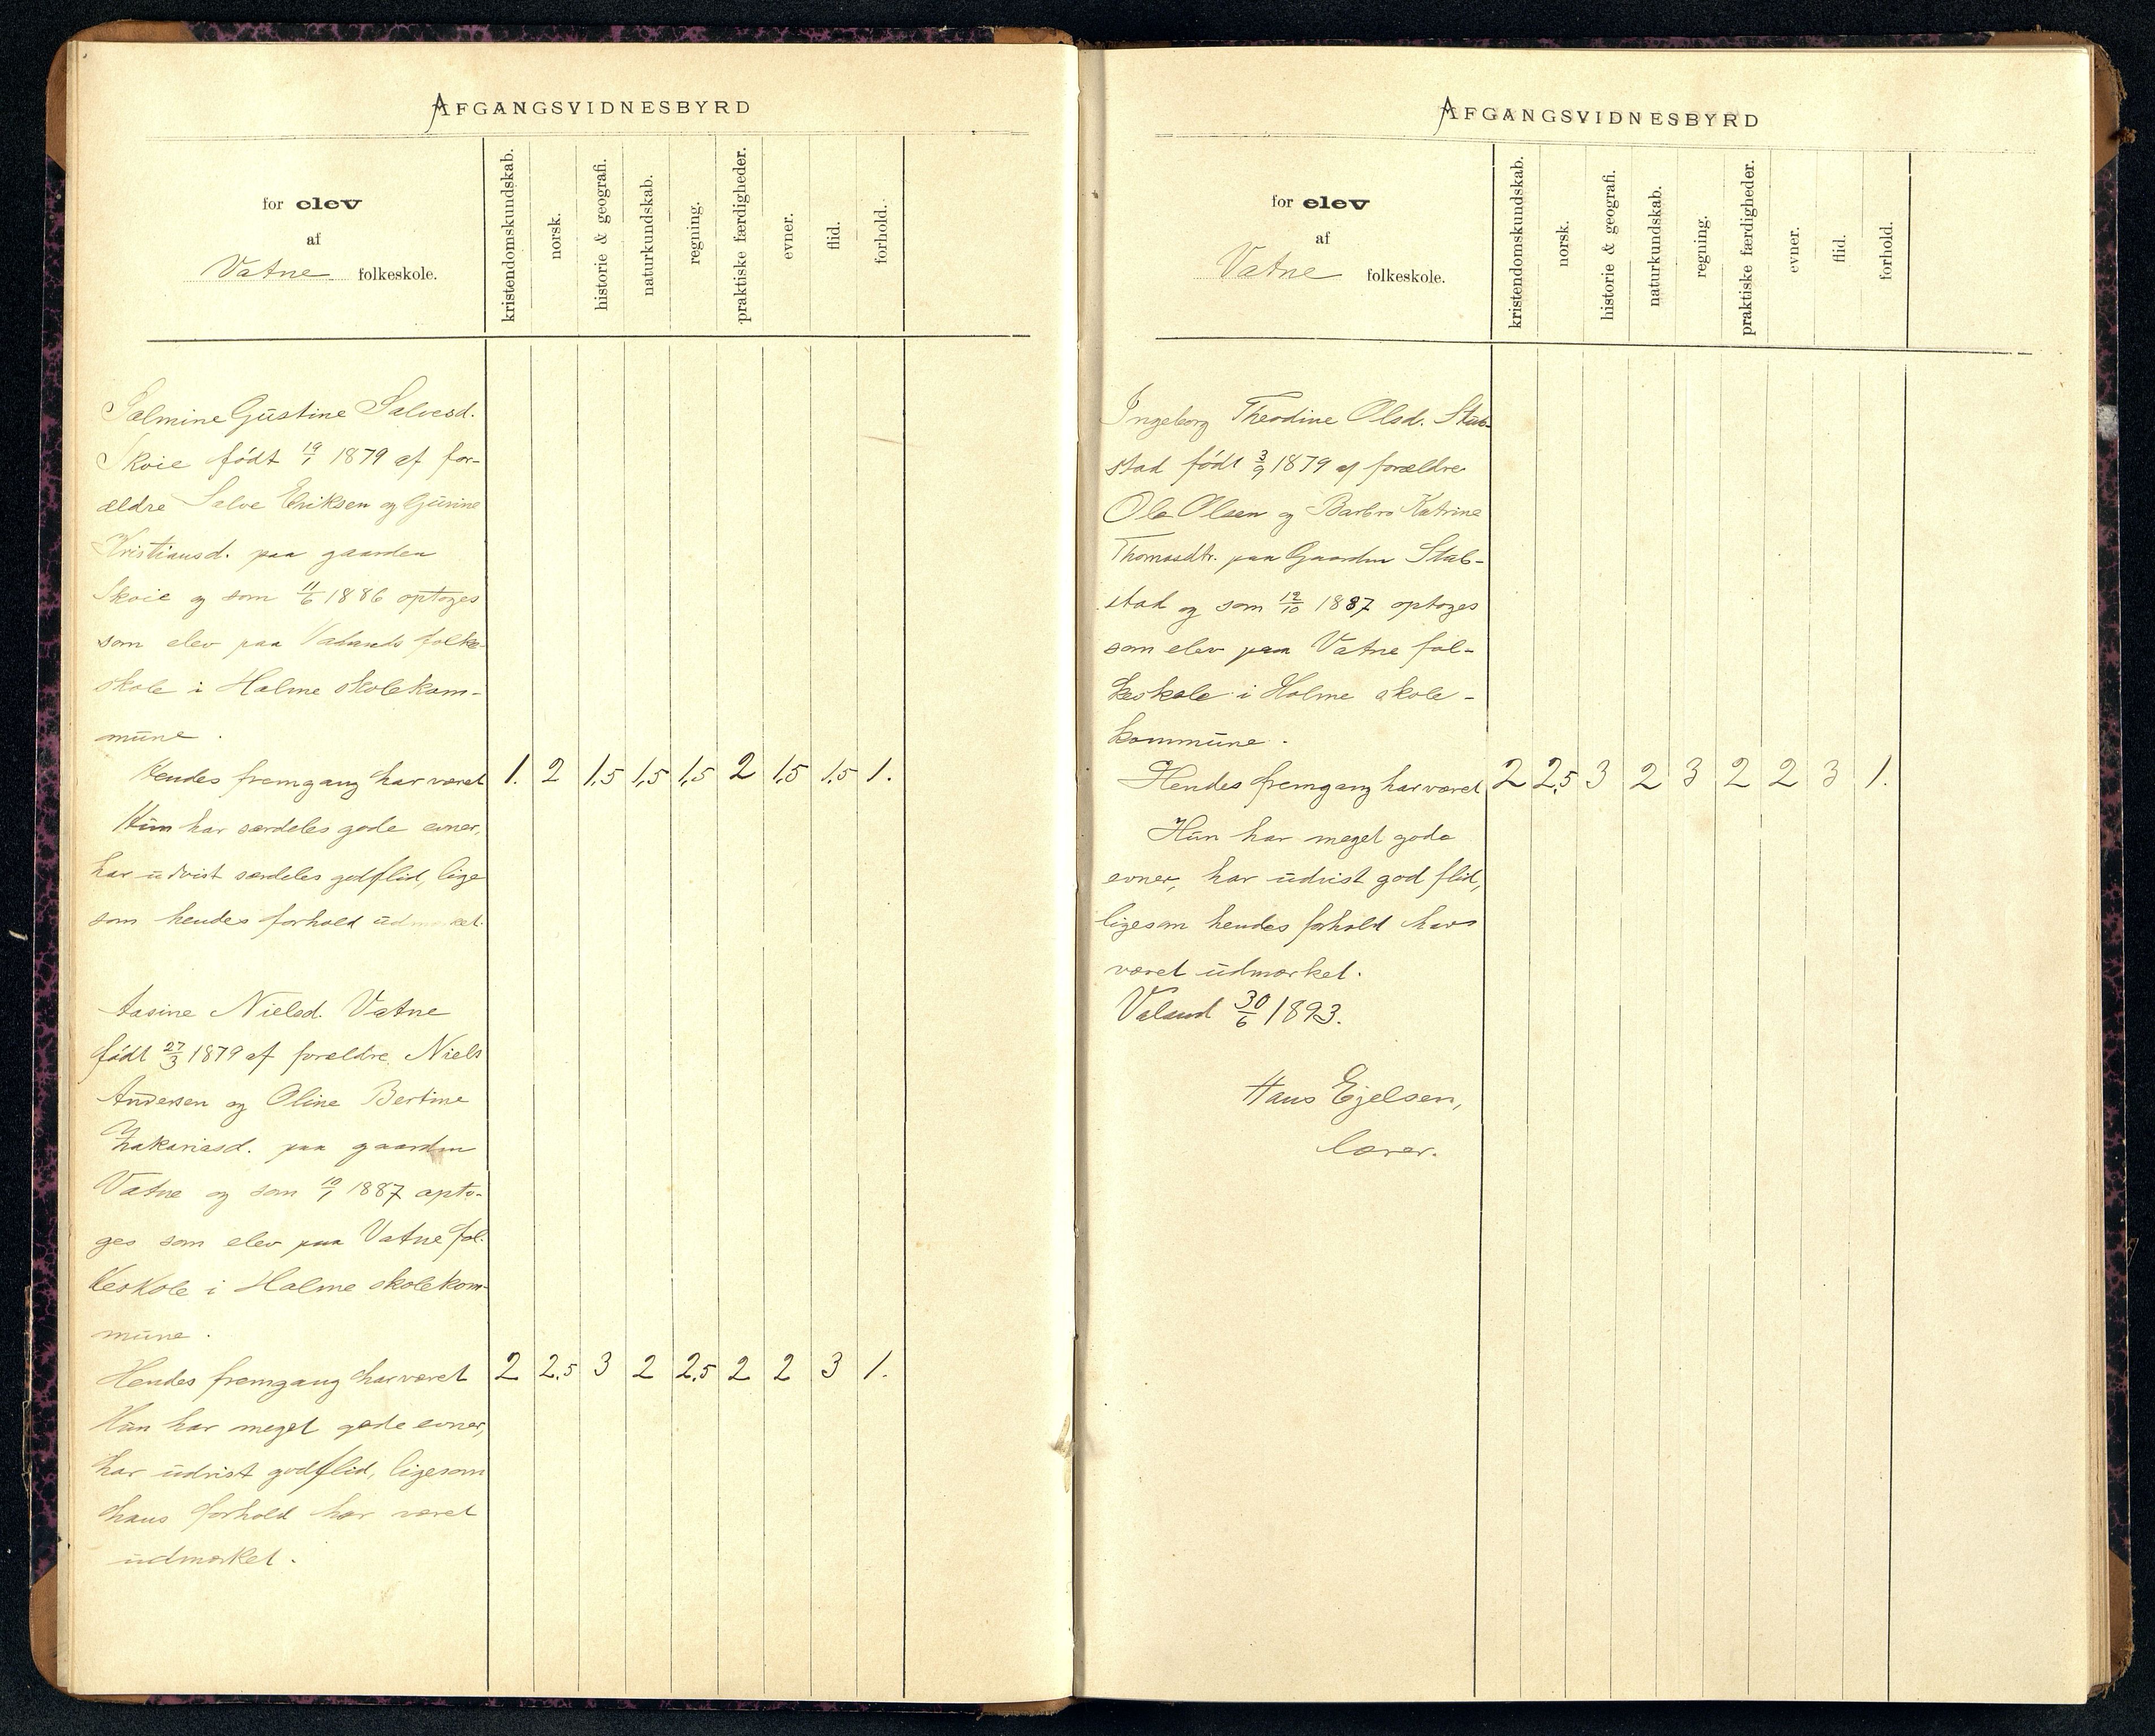 AFGANGSVIDNESBYRD
for elev
af
Vatne folkeskole.
kristendomskundskab.
norsk.
historie & geografi.
naturkundskab.
regning.
praktiske færdigheder.
evner.
flid.
forhold.
Salmine Gustine Salvesd.
Skoie født 19/1 1879 af for-
ældre Salve Eriksen og Gurine
Kristiansd. paa gaarden
Skoie og som 11/6 1886 optoges
som elev paa Valands folke-
skole i Halme skolekom-
mune.
Hendes fremgang har været 1. 2 1,5 1,5 1,5 2 1,5 1,5 1.
Hun har særdeles gode evner,
har udvist særdeles god flid, lige
som hendes forhold udmærket.
Aasine Nielsd. Vatne
født 27/3 1879 af forældre Niels
Andersen og Oline Bertine
Zakariasd. paa gaarden
Vatne og som 10/1 1887 opto-
ges som elev paa Vatne fol-
keskole i Halme skolekom-
mune.
Hendes fremgang har været 2 2,5 3 2 2,5 2 2 3 1.
Hun har meget gode evner,
har udvist god flid, ligesom
hans forhold har været
udmærket.
AFGANGSVIDNESBYRD
for elev
af
Vatne folkeskole.
kristendomskundskab.
norsk.
historie & geografi.
naturkundskab.
regning.
praktiske færdigheder.
evner.
flid.
forhold.
Ingeborg Theodine Olsd. Stub-
stad født 3/9 1879 af forældre
Ole Olsen og Barbro Katrine
Thomasdtr. paa Gaarden Stub-
stad og som 12/10 1887 optoges
som elev paa Vatne fol-
keskole i Holme skole-
kommune.
Hendes fremgang har været 2 2,5 3 2 3 2 2 3 1.
Hun har meget gode
evner, har udvist god flid,
ligesom hendes forhold har
været udmærket.
Valand 30/6 1893.
Hans Ejelsen,
lærer.